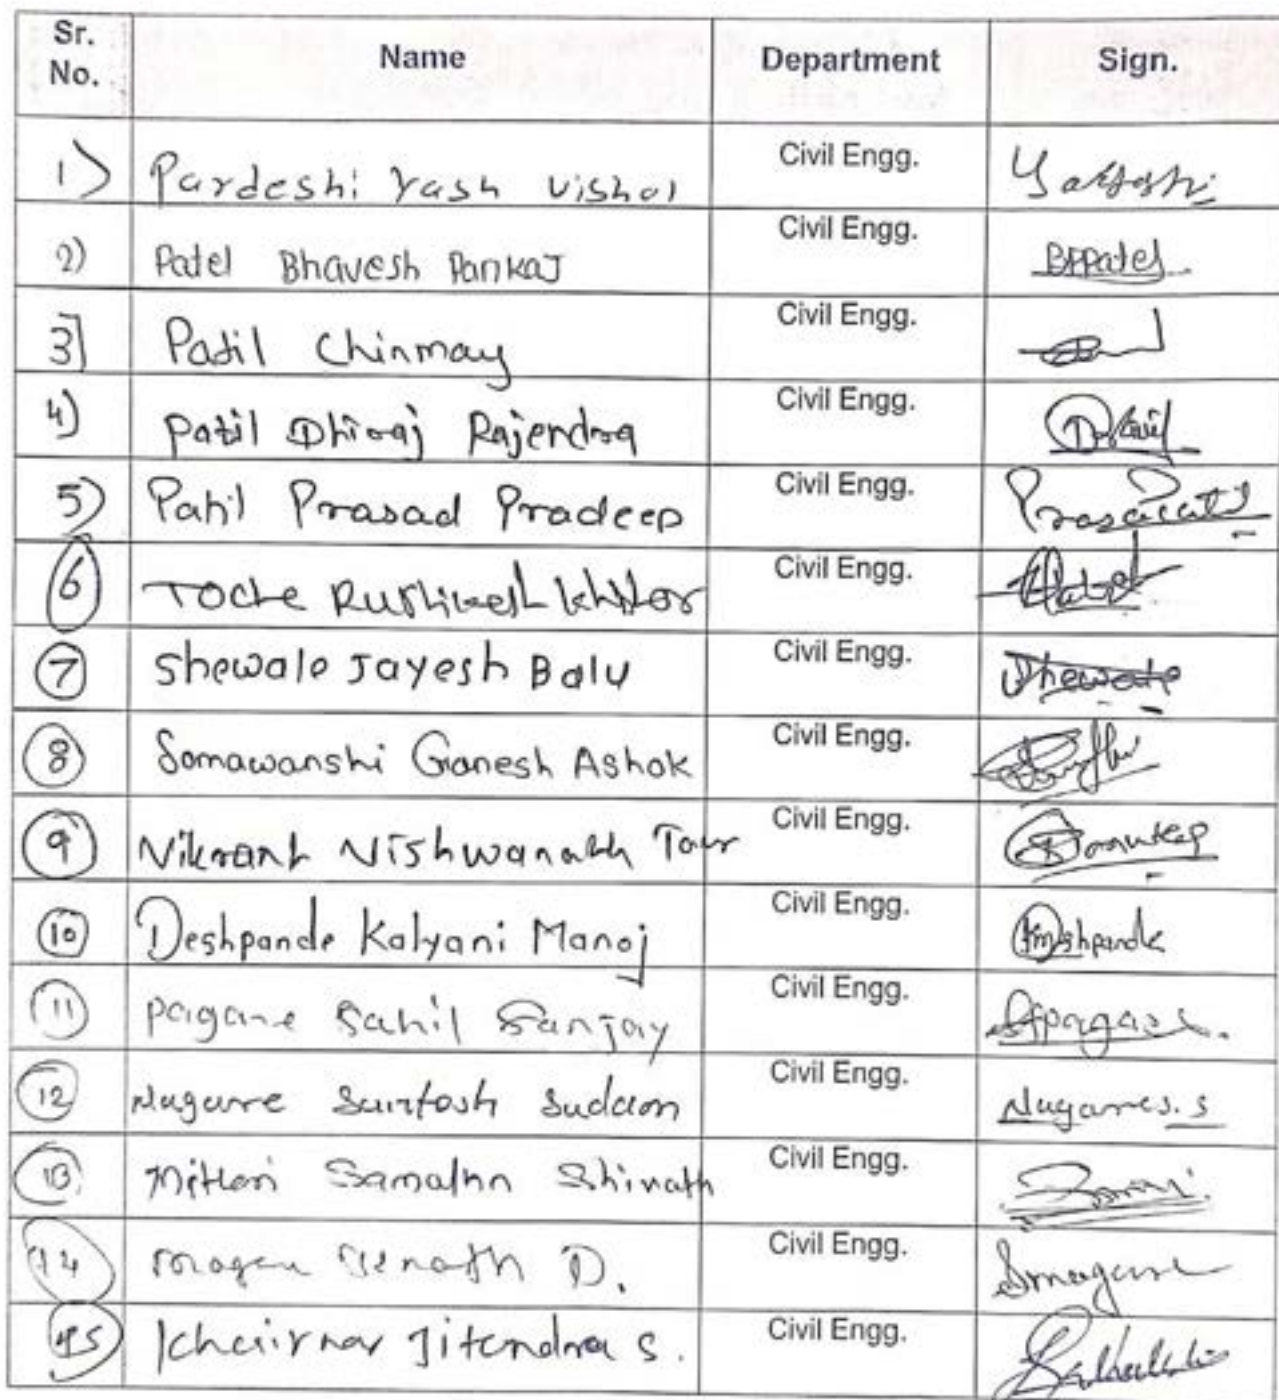 Sr. No. Name Department Sign.
1) Pardeshi Yash Vishal Civil Engg.
2) Patel Bhavesh Pankaj Civil Engg. BPPatel
3] Patil Chinmay Civil Engg.
4) Patil Dhiraj Rajendra Civil Engg.
5) Patil Prasad Pradeep Civil Engg. PrasadPatil
6 Toche Rushikesh Civil Engg.
7 Shewale Jayesh Balu Civil Engg. Shewale
8 Somawanshi Ganesh Ashok Civil Engg.
9 Vikrant Vishwanath Civil Engg.
10 Deshpande Kalyani Manoj Civil Engg. KMDshpande
11 Pagare Sahil Sanjay Civil Engg.
12 Nagare Santosh Sudam Civil Engg. Nagare S. S
13 Civil Engg.
14 D. Civil Engg. Smagare
15 Khairnar Jitendra S. Civil Engg.